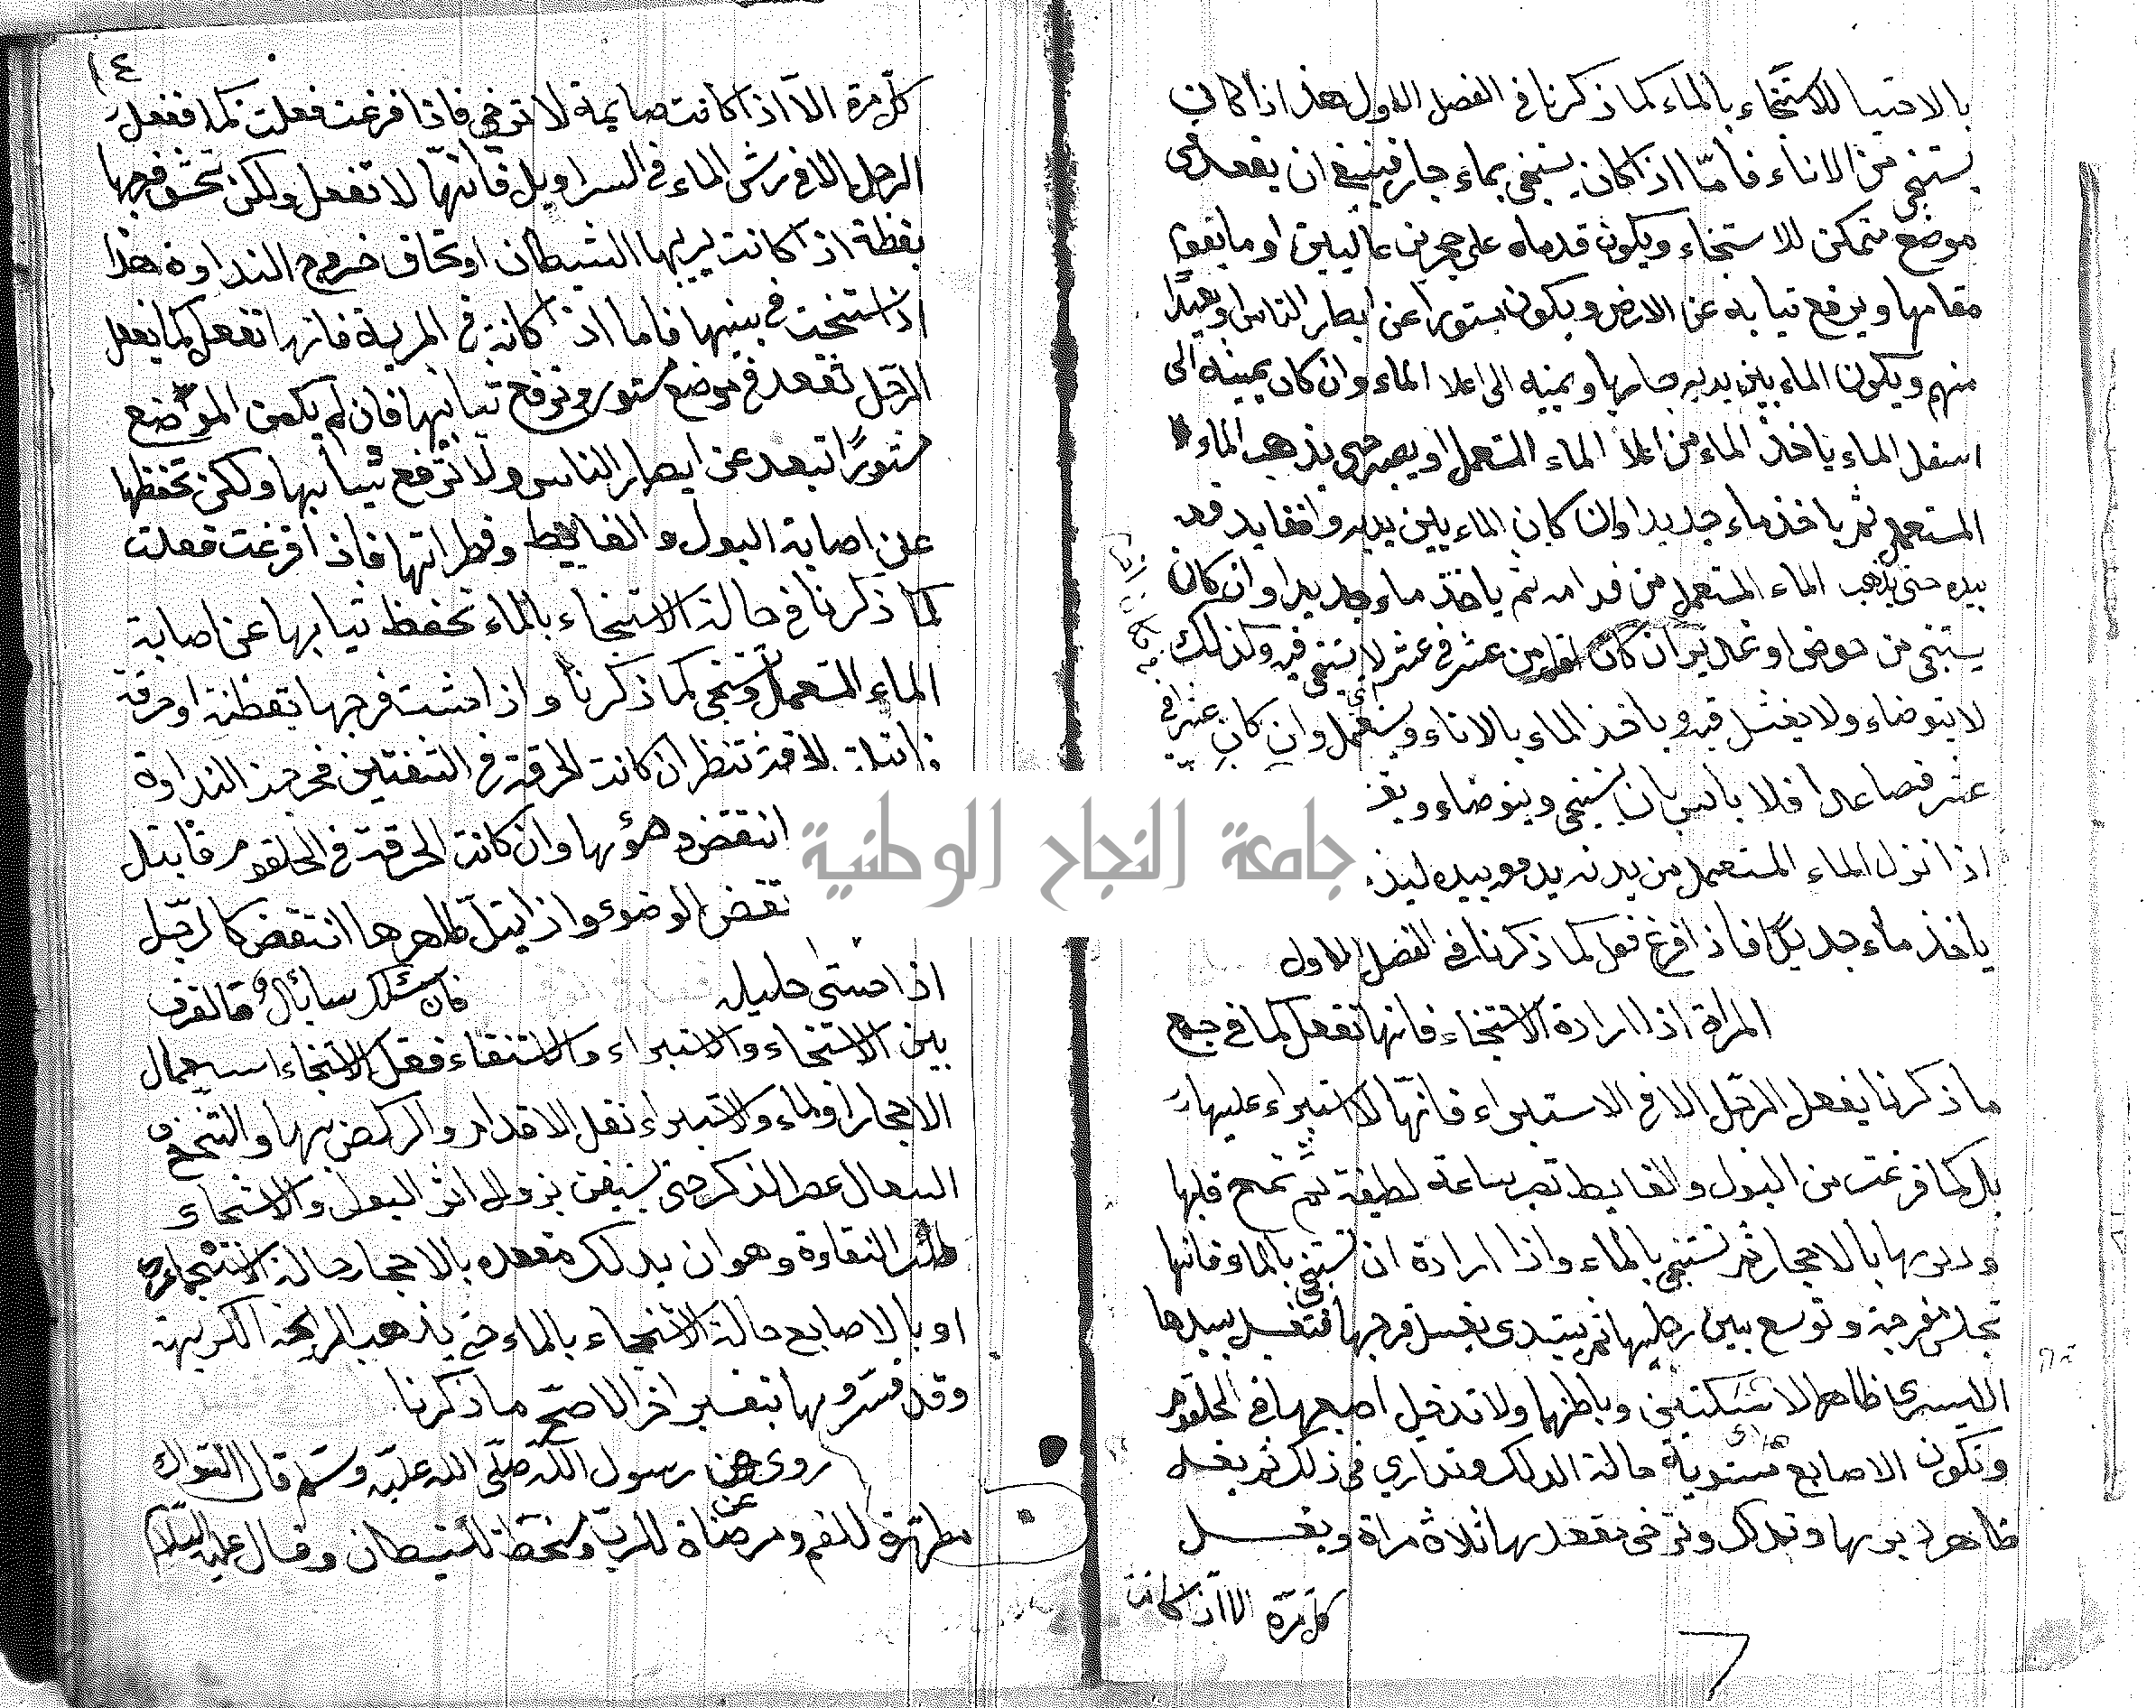 بالاحتيا للاستنجاء بالماء كما ذكرنا في الفصل الاول هذا اذا كان
يستنجي من الاناء فامّا اذا كان يستنجي بماء جار فينبغي ان يقعد في
موضع متمكن للاستنجاء ويكون قدماه على حجرين عاليين او ما يقوم
مقامها ويرفع ثيابه عن الارض ويكون مستورا عن ابصار الناس وبعيدًا
منهم ويكون الماء بين يديه جاريها ويمينه الى اعلا الماء وان كان يمينه الى
اسفل الماء ياخذ الماء من اعلا الماء المستعمل او يصبر حتى يذهب الماء
المستعمل ثم ياخذ ماء جديدا وان كان الماء بين يديه واقفا يدفعه
بيده حتى يذهب الماء المستعمل من قدامه ثم ياخذ ماء جديدا وان كان
يستنجي من حوض او غدير ان كان اقل من عشر في عشر لا يستنجي فيه وكذلك
لا يتوضاء ولا يغتسل فيه وياخذ الماء بالاناء ويستعمل وان كان عشرا في
عشر فصاعدا فلا باس بان يستنجي ويتوضاء ويغ
اذا نزل الماء المستعمل من بدنه يدفعه بيده ليذ
ياخذ ماء جديدًا فاذا فرغ فعل كما ذكرنا في الفصل الاول
المراة اذا ارادة الاستنجاء فانها تفعل كما في جميع
ما ذكرنا يفعل الرّجل الا في الاستبراء فانّها لا استبراء عليها
بل كما فرغت من البول والغايط تصبر ساعة لطيفة ثم تمسح قبلها
ودبرها بالاحجار ثم تستنجي بالماء واذا ارادة ان تستنجي بالماء فانها
تجلس منفرجة وتوسع بين رجليها ثم يبتدي بغسل فرجها فتغسل بيدها
اليسرى ظاهر الاسكتين وباطنها ولا تدخل اصبعها في الحلقوم
وتكون الاصابع مستوية حالة الدلك وتداري في ذلك ثم يغسل
ظاهر دبرها وتدلك وترخي مقعدها ثلاث مراة وبغسل
كل مرّة الا اذا كانت
١٤
كلّ مرة الاّ اذا كانت صايمة لا ترخي فاذا فرغت فعلت كما فعل
الرجل الا في رش الماء في السراويل فانّها لا تفعل ولكن تحشو فرجها
بقطنة اذا كانت يريبها الشيطان او تخاف خروج النداوة هذا
اذا استنجت في بيتها فاما اذا كانة في البرية فانها تفعل كما يفعل
الرّجل تقعد في موضع مستور وترفع ثيابها فان لم يكن الموضع
مستورًا تبعد عن ابصار الناس ولا ترفع ثيابها ولكن تحفظها
عن اصابة البول والغايط وقطراتها فاذا فرغت فعلت
كما ذكرنا في حالة الاستنجاء بالماء تحفظ ثيابها عن اصابة
الماء المستعمل وتستنجي كما ذكرنا واذا حشت فرجها بقطنة او خرقة
تنظر ان كانت الخرقة في الشفتين فخرجت النداوة
انتقض وضوءها وان كانت الخرقة في الحلقوم فابتل
نقض الوضوء واذا ابتلّ ظاهرها انتقض كالرّجل
اذا حشى حليله فان سئلك سائل ما الفرق
بين الاستنجاء والاستبراء والاستنقاء فقل الاستنجاء استعمال
الاحجار او الماء والاستبراء نقل الاقدام والركض بها والتنحنح و
السعال عصر الذكر حتى يستيقن بزوال اثر البول والاستنقاء
طلب النقاوة وهو ان يدلك مقعده بالاحجار حالة الاستنجاء بها
او بالاصابع حالة الاستنجاء بالماء حتى يذهب الرايحة الكريهة
وقد فسّروها بتفسير اخر الاصحّ ما ذكرنا
روى عن رسول اللّه صلّى الله عليه وسلم قال السّواك
مطهرة للفم ومرضاة للربّ ومسخطة للشيطان وقال عليه السّلام
جامعة النجاح الوطنية